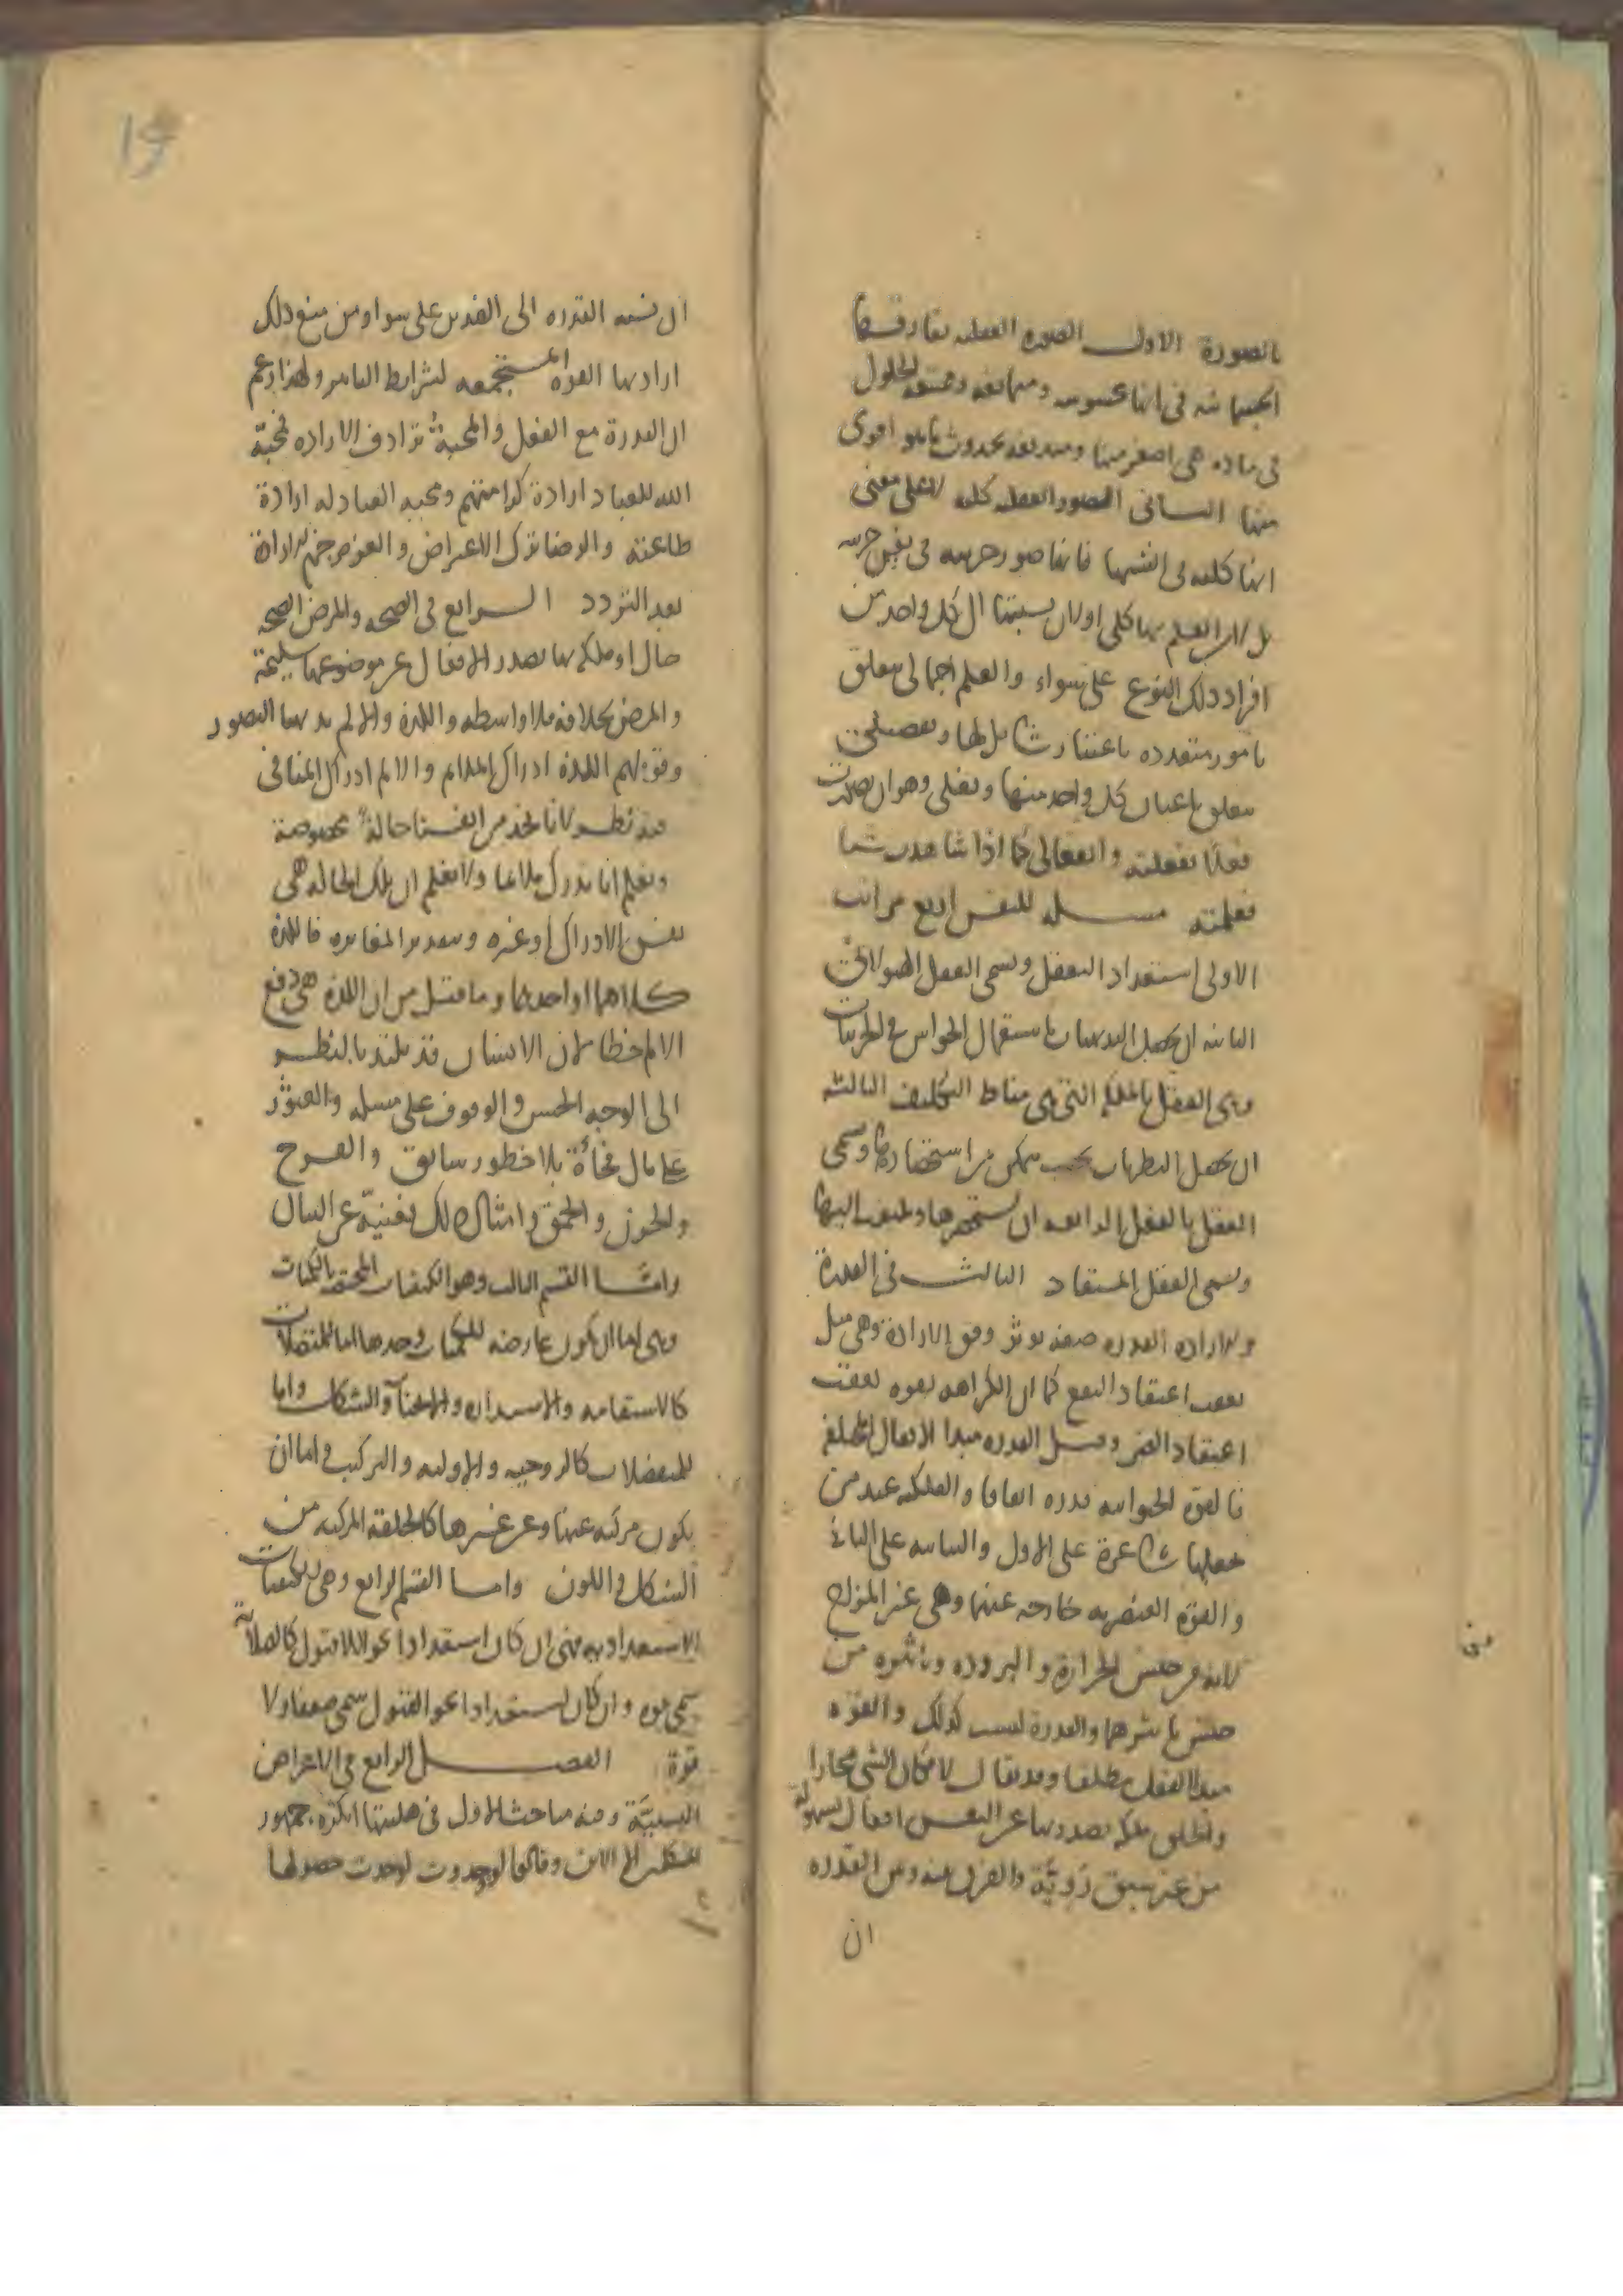 بالصورة الاول الصوره العقليه تفارقها
الجسمانيه في انها محسوسه ومتمانعه وممتنعه الحلول
في ماده هي اصغر منها ومندفعه بحدوث ما هو اقوى
منها الثاني الصور العقليه كليه لا على معنى
انها كليه في انفسها فانها صور جزييه في نفس جزييه
بل لان العلم بها كلي او لان نسبتها الى كل واحد من
افراد ذلك النوع على سواء والعلم اجمالي يتعلق
بامور متعدده باعتبار شامل لها وتفصيلي
يتعلق باعيان كل واحد منها وفعلي وهو ان تصورت
فعلا ففعلته وانفعالي كما اذا شاهدت شيا
فعلمته مسله للنفس اربع مراتب
الاولى استعداد التعقل ويسمى العقل الهيولاني
الثانيه ان يحصل البديهيات باستعمال الحواس في الجزييات
وهي العقل بالملكه التي هي مناط التكليف الثالثه
ان يحصل النظريات بحيث يتمكن من استحضارها ويسمى
العقل بالفعل الرابعه ان يستحضرها ويلتفت اليها
ويسمى العقل المستفاد الثالث في القدرة
والاراده القدره صفه توثر وفق الارادة وهي ميل
يعقب اعتقاد النفع كما ان الكراهه نفره تعقب
اعتقاد الضر وقيل القدره مبدا الافعال المختلفه
فالقوة الحيوانيه قدره اتفاقا والفلكيه عند من
جعلها شاعرة على الاول والنباتيه على الثاني
والقوة العنصريه خارجه عنهما وهي غير المزاج
لانه من جنس الحرارة والبروده وتاثيره من
جنس تاثيرهما والقدرة ليست كذلك والقوه
مبدا الفعل مطلقا وقد يقال لامكان الشي مجازا
والخلق ملكه يصدر بها عن النفس افعال بسهولة
من غير سبق رويّة والفرق بينه وبين القدره
ان
ان نسبه القدره الى الضدين على سوا ومن منع ذلك
اراد بها القوه المستجمعه لشرايط التاثير ولهذا زعم
ان القدرة مع الفعل والمحبة ترادف الاراده فمحبّة
الله للعباد ارادة كرامتهم ومحبه العباد له ارادة
طاعته والرضا ترك الاعراض والعزم جزم الارادة
بعد التردد الرابع في الصحه والمرض الصحه
حال او ملكه بها تصدر الافعال عن موضوعها سليمة
والمرض بخلافه فلا واسطه واللذة والالم بديهيا التصور
وقولهم اللذة ادراك الملايم والالم ادراك المنافي
فيه نظر لانا نجد من انفسنا حالة مخصوصة
ونعلم انا ندرك ملايما ولا نعلم ان تلك الحاله هي
نفس الادراك او غيره وبتقدير المغايره فاللذة
كلاهما او احدهما وما قيل من ان اللذة هي دفع
الالم خطا لان الانسان قد يلتذ بالنظر
الى الوجه الحسن والوقوف على مسله والعثور
على مال فجأة بلا خطور سابق والفرح
والحزن والحقد وامثال ذلك نفسيّة عن البيان
واما القسم الثالث وهو الكيفيات المختصه بالكميات
وهي اما ان يكون عارضه للكميات وحدها اما للمتصلات
كالاستقامه والاستداره والانحنآ والشكل واما
للمنفصلات كالزوجيه والاوليه والتركيب واما ان
يكون مركبه عنها وعن غيرها كالخلقه المركبه من
الشكل واللون واما القسم الرابع وهي الكيفيات
الاستعداديه فهي ان كان استعدادا نحو اللاقبول كالصلابة
سمي قوه وان كان استعدادا نحو القبول سمي ضعفا ولا
قوة الفصل الرابع في الاعراض
النسبيّة وفيه مباحث الاول في هليتها انكره جمهور
المتكلمين الا الاين وقالوا لو وجدت لوجدت حصولها